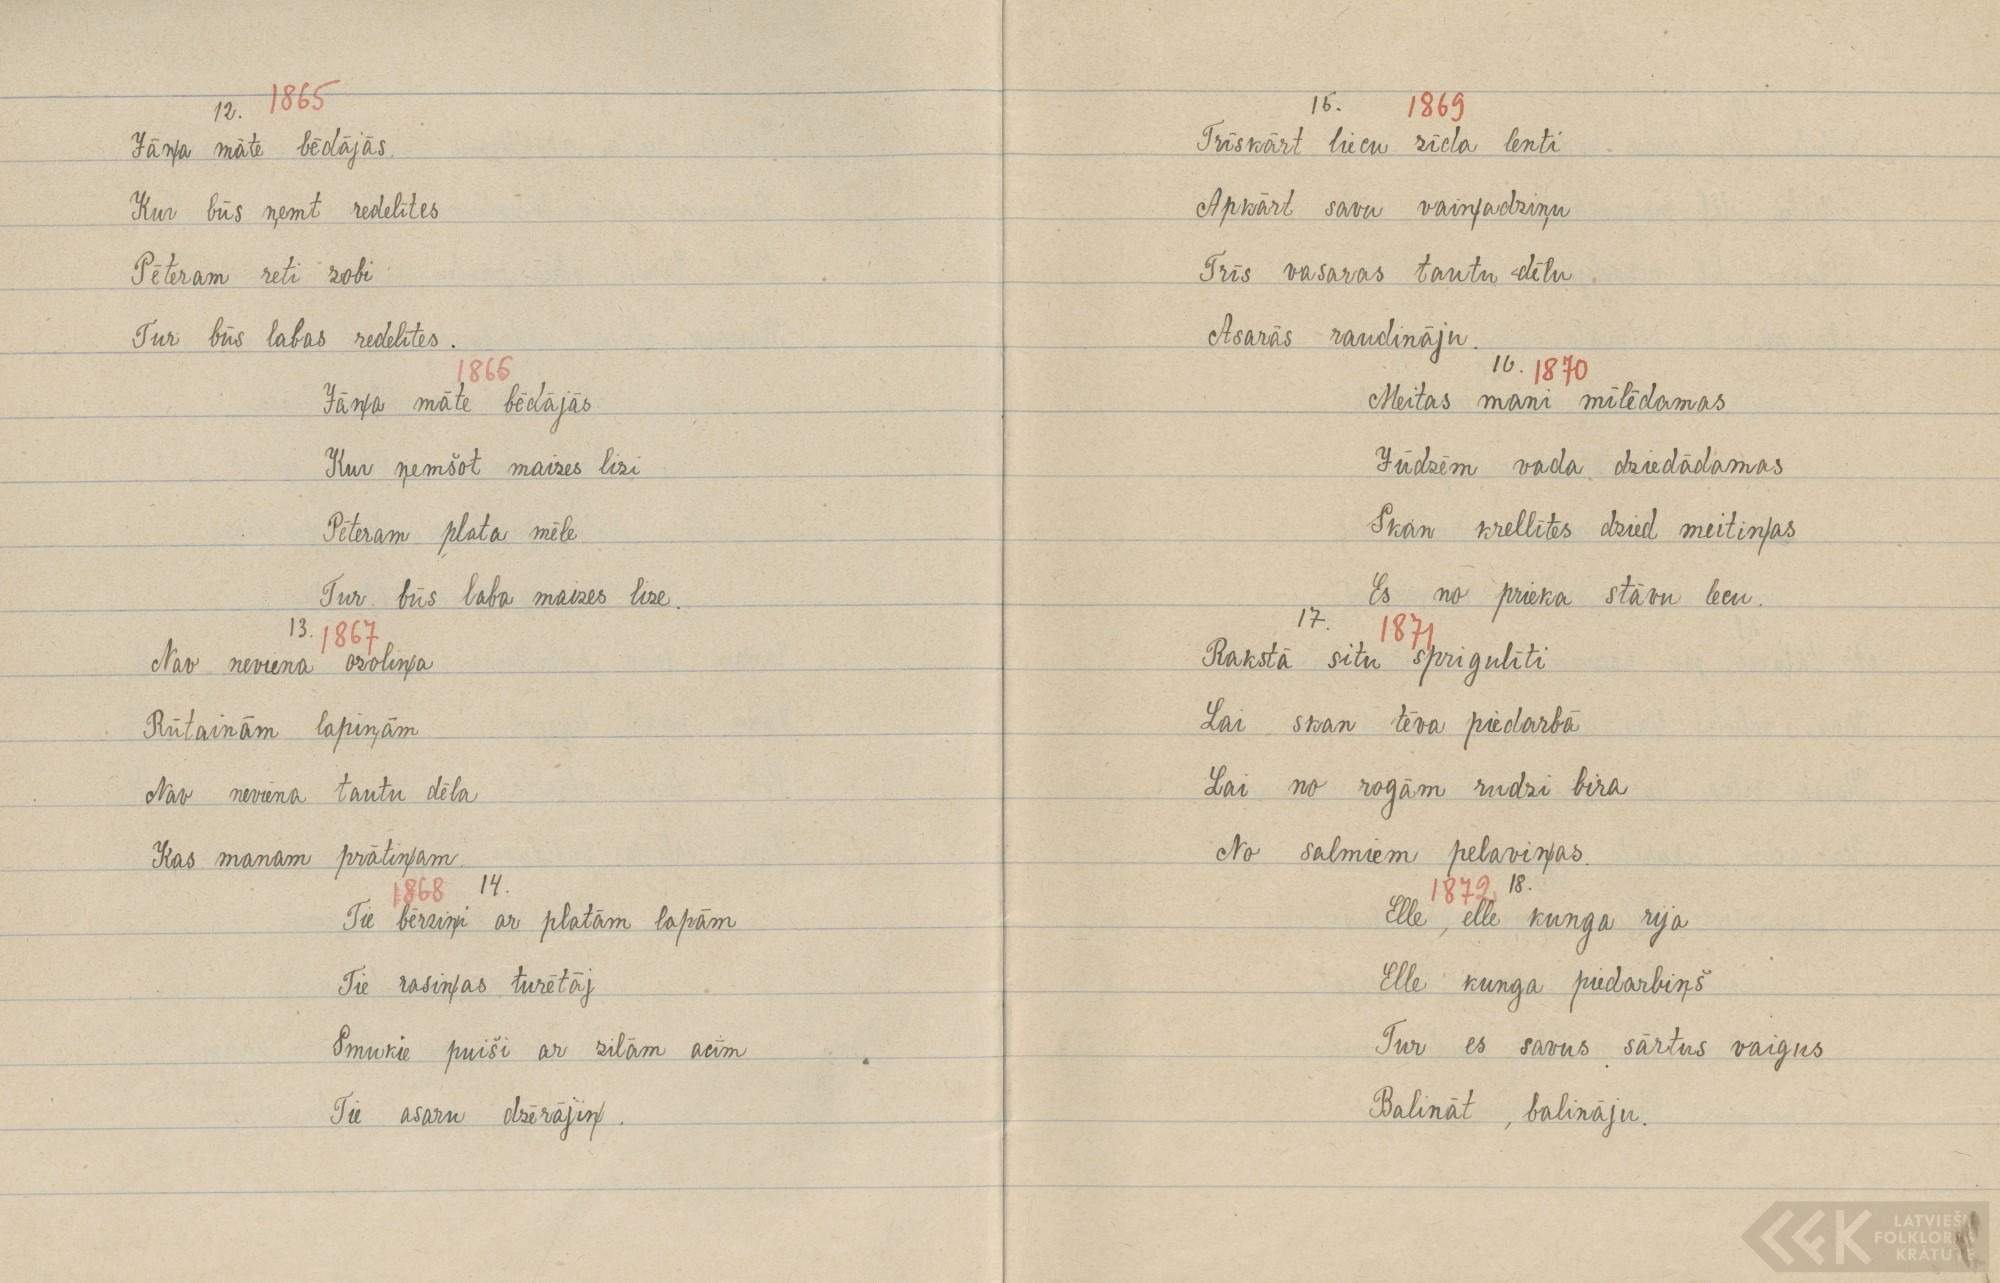 12. 1865
Jāņa māte bēdājās
Kur būs ņemt redelītes
Pēteram reti zobi
Tur būs labas redelītes.
1866
Jāņa māte bēdājās
Kur ņemšot maizes lizi
Pēteram plata mēle
Tur būs laba maizes lize.
13. 1867
Nav neviena ozoliņa
Rūtainām lapiņām
Nav neviena tautu dēla
Kas manam prātiņam.
1868 14.
Tie bērziņi ar platām lapām
Tie rasiņas turētāj
Smukie puiši ar zilām acīm
Tie asaru dzērājiņ.
15. 1869
Trīskārt liecu zīda lenti
Apkārt savu vaiņadziņu
Trīs vasaras tautu dēlu
Asarās raudināju.
16. 1870
Meitas mani mīlēdamas
Jūdzēm vada dziedādamas
Skan krellītes dzied meitiņas
Es no prieka stāvu lecu.
17. 1871
Rakstā situ sprigulīti
Lai skan tēva piedarbā
Lai no rogām rudzi bira
No salmiem pelaviņas.
1872, 18.
Elle, elle kunga rija
Elle kunga piedarbiņš
Tur es savus sārtus vaigus
Balināt, balināju.
LATVIEŠU
FOLKLORAS
KRĀTUVE